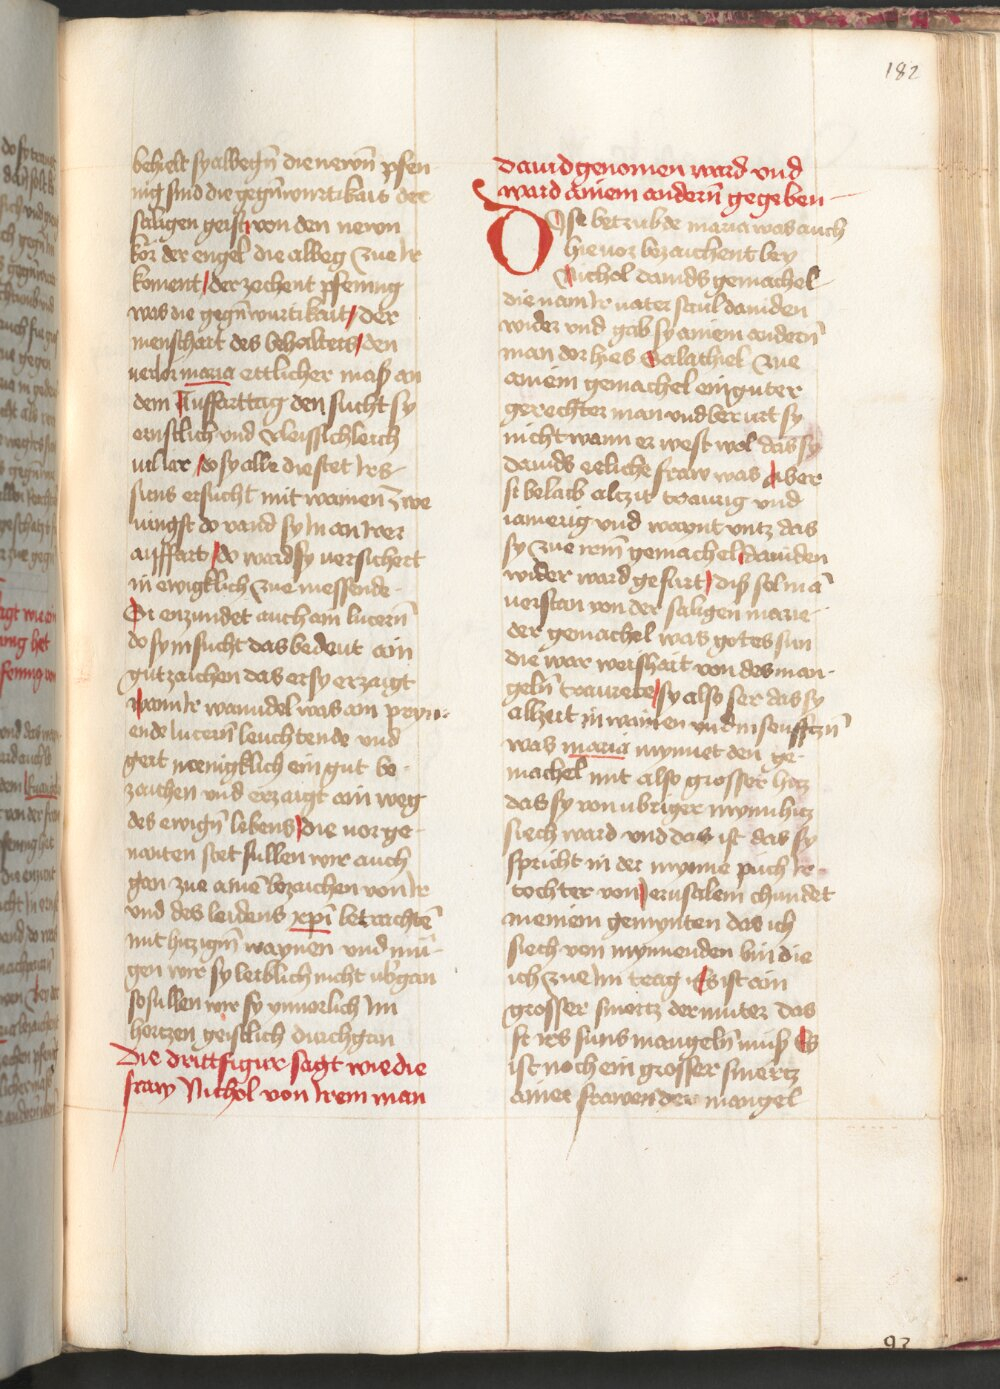 182
behielt sy albegn̄ die newn̄ pfen-
nig sind die gegn̄wurtikais der
saligen geist von den newn
kor der engel die albeg zue Ir
koment der zechent pfennig
was die gegn̄wurtikait der
menschart des behalters den
verlor maria ettlicher mass an
dem Auffarttag den sucht sy
ernstlich und vleissichleich
wann Ir wanndel was ain pryn-
ende lucern̄ leuchtende und
zaichen und erzaigt ain weg
des ewign̄ lebens die vorge-
nanten stet sullen wir auch
und des leidens xp̄i betrachtē
mit hitzigm̄ waynen und mü-
gen wir sy leiblich nicht ub̄gan
so sullen wir sy ynnerlich Im
hertzen geistlich durchgan
die dritt figur sagt wie die
fraw Nichol von Irem man
dauid genomen ward vnd
ward ainem andern̄ gegeben
Dise betrubde maria was auch
hie vor bezaichent bey
Nichol dauids gemachel
die nam Ir vater saul dauiden
wider und gab sy ainem andern̄
man der hies Salathiel zue
ainem gemachel ein guter
gerechter man und berurt sy
nicht wann er west wol das sy
dauids eeliche fraw was Aber
si belaib alzeit traurig und
iamerig und waynt untz das
sy zue irem̄ gemachel dauiden
wider ward gefurt diss sol mā
verstan von der saligen marie
der gemachel was gotes sun
die war weishait von des man-
geln̄ traurete sy also ser das sy
alzeit in wainen und in seufftzn̄
was maria mynnet den ge-
machel mit also grosser hitz
das sy von ubriger mynnhitz
siech ward und das ist das sy
spricht in der mynne puch Ir
tochter von Jerusalem chundet
meinem gemynten das ich
siech von mynnenden bin die
ich zue Im trag Es ist ain
grosser smertz der muter das
si irs suns mangeln̄ muss Es
ist noch ein grosser smertz
ainer frawen der mangel